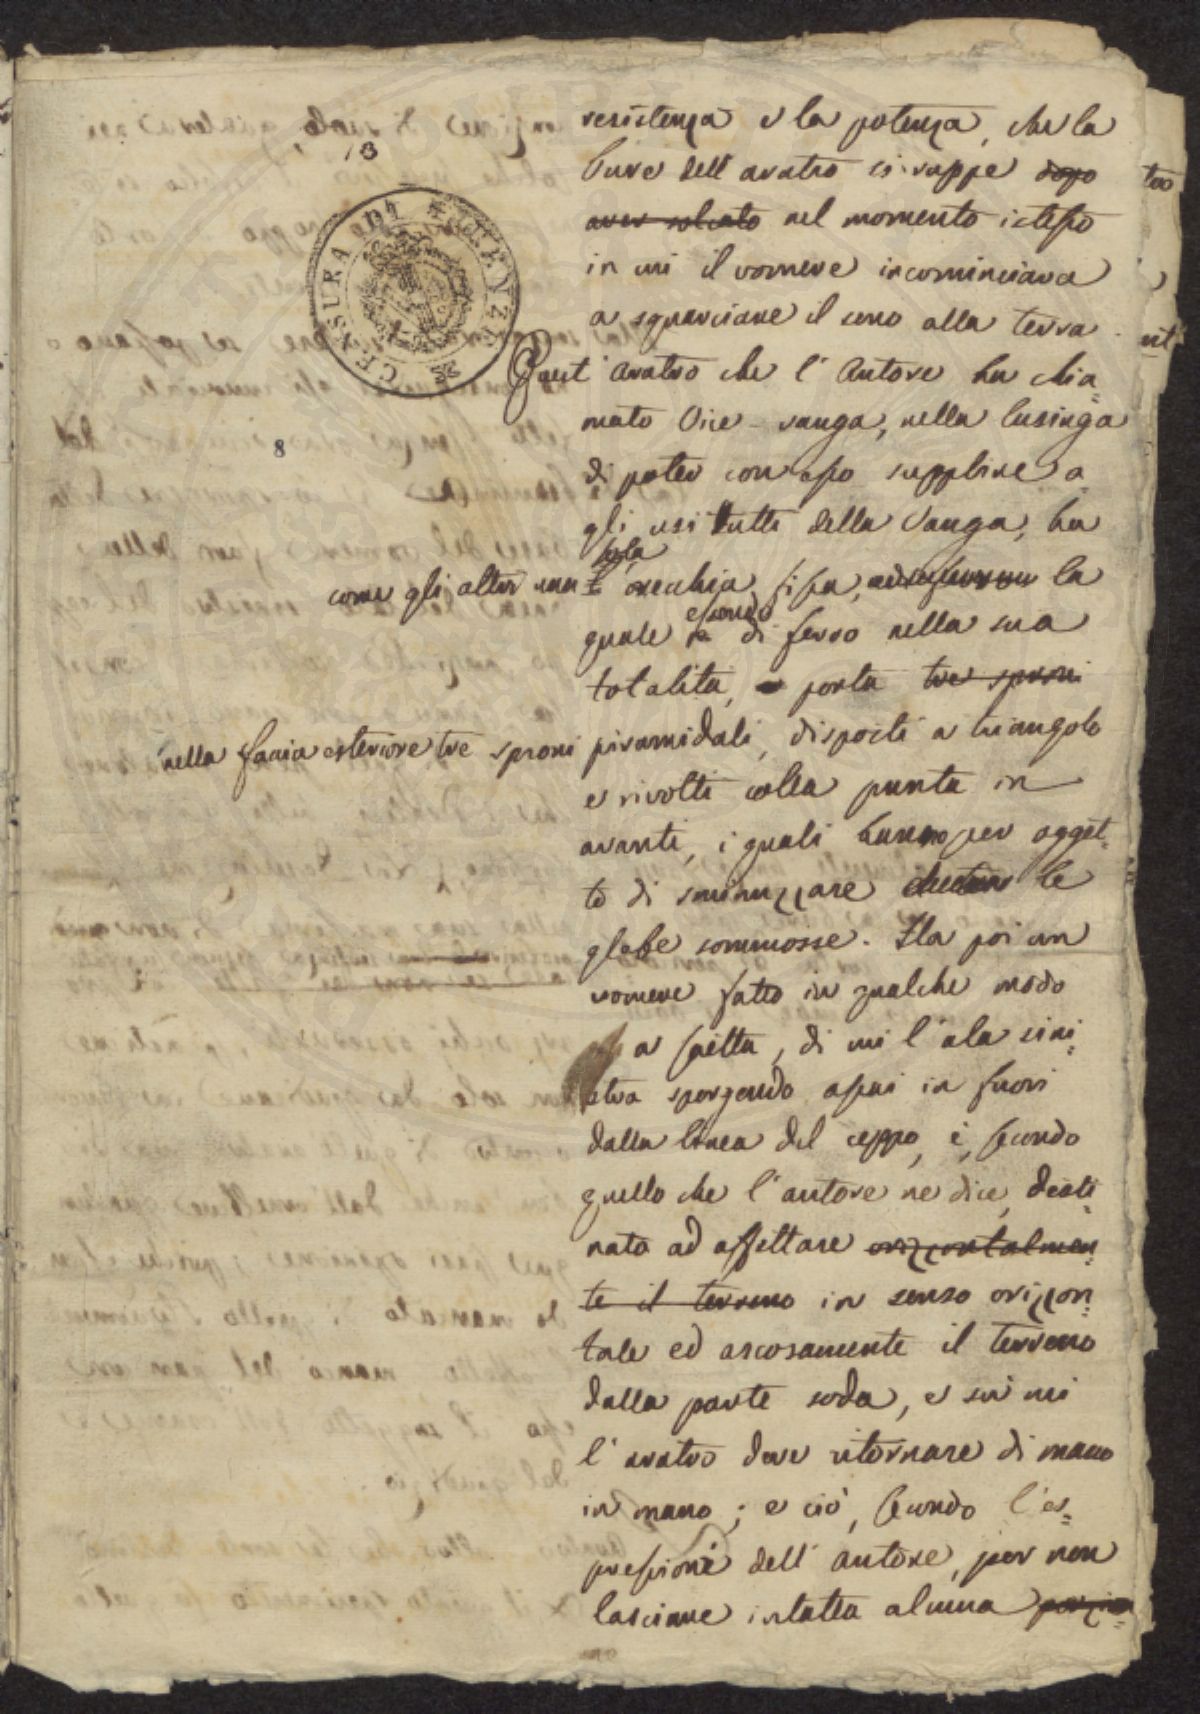 13
CENSURA DI FIRENZE
8
resistenza e la potenza, che la
bure dell'aratro si ruppe dopo
aver solcato nel momento istesso
in cui il vomere incominciava
a squarciare il seno alla terra.
Quest'aratro che l'Autore ha chia=
mato Vice-vanga, nella lusinga
di poter con esso supplire a
gli usi tutti della Vanga, ha
come gli altri una sola orecchia fissa, la
quale essendo di ferro nella sua
totalità, porta tre sproni
nella faccia esteriore tre sproni piramidali, disposti a triangolo
e rivolti colla punta in
avanti, i quali hanno per ogget=
to di sminuzzare le
glebe sommosse. Ha poi un
vomere fatto in qualche modo
a saetta, di cui l'ala sini=
stra sporgendo assai in fuori
dalla linea del ceppo, è, secondo
quello che l'autore ne dice, desti=
nata ad affettare orizzontalmen=
te il terreno in senso orizzon=
tale ed ascosamente il terreno
dalla parte soda, e su cui
l'aratro deve ritornare di mano
in mano; e ciò, secondo l'es=
pressione dell'autore, per non
lasciare intatta alcuna porzion=